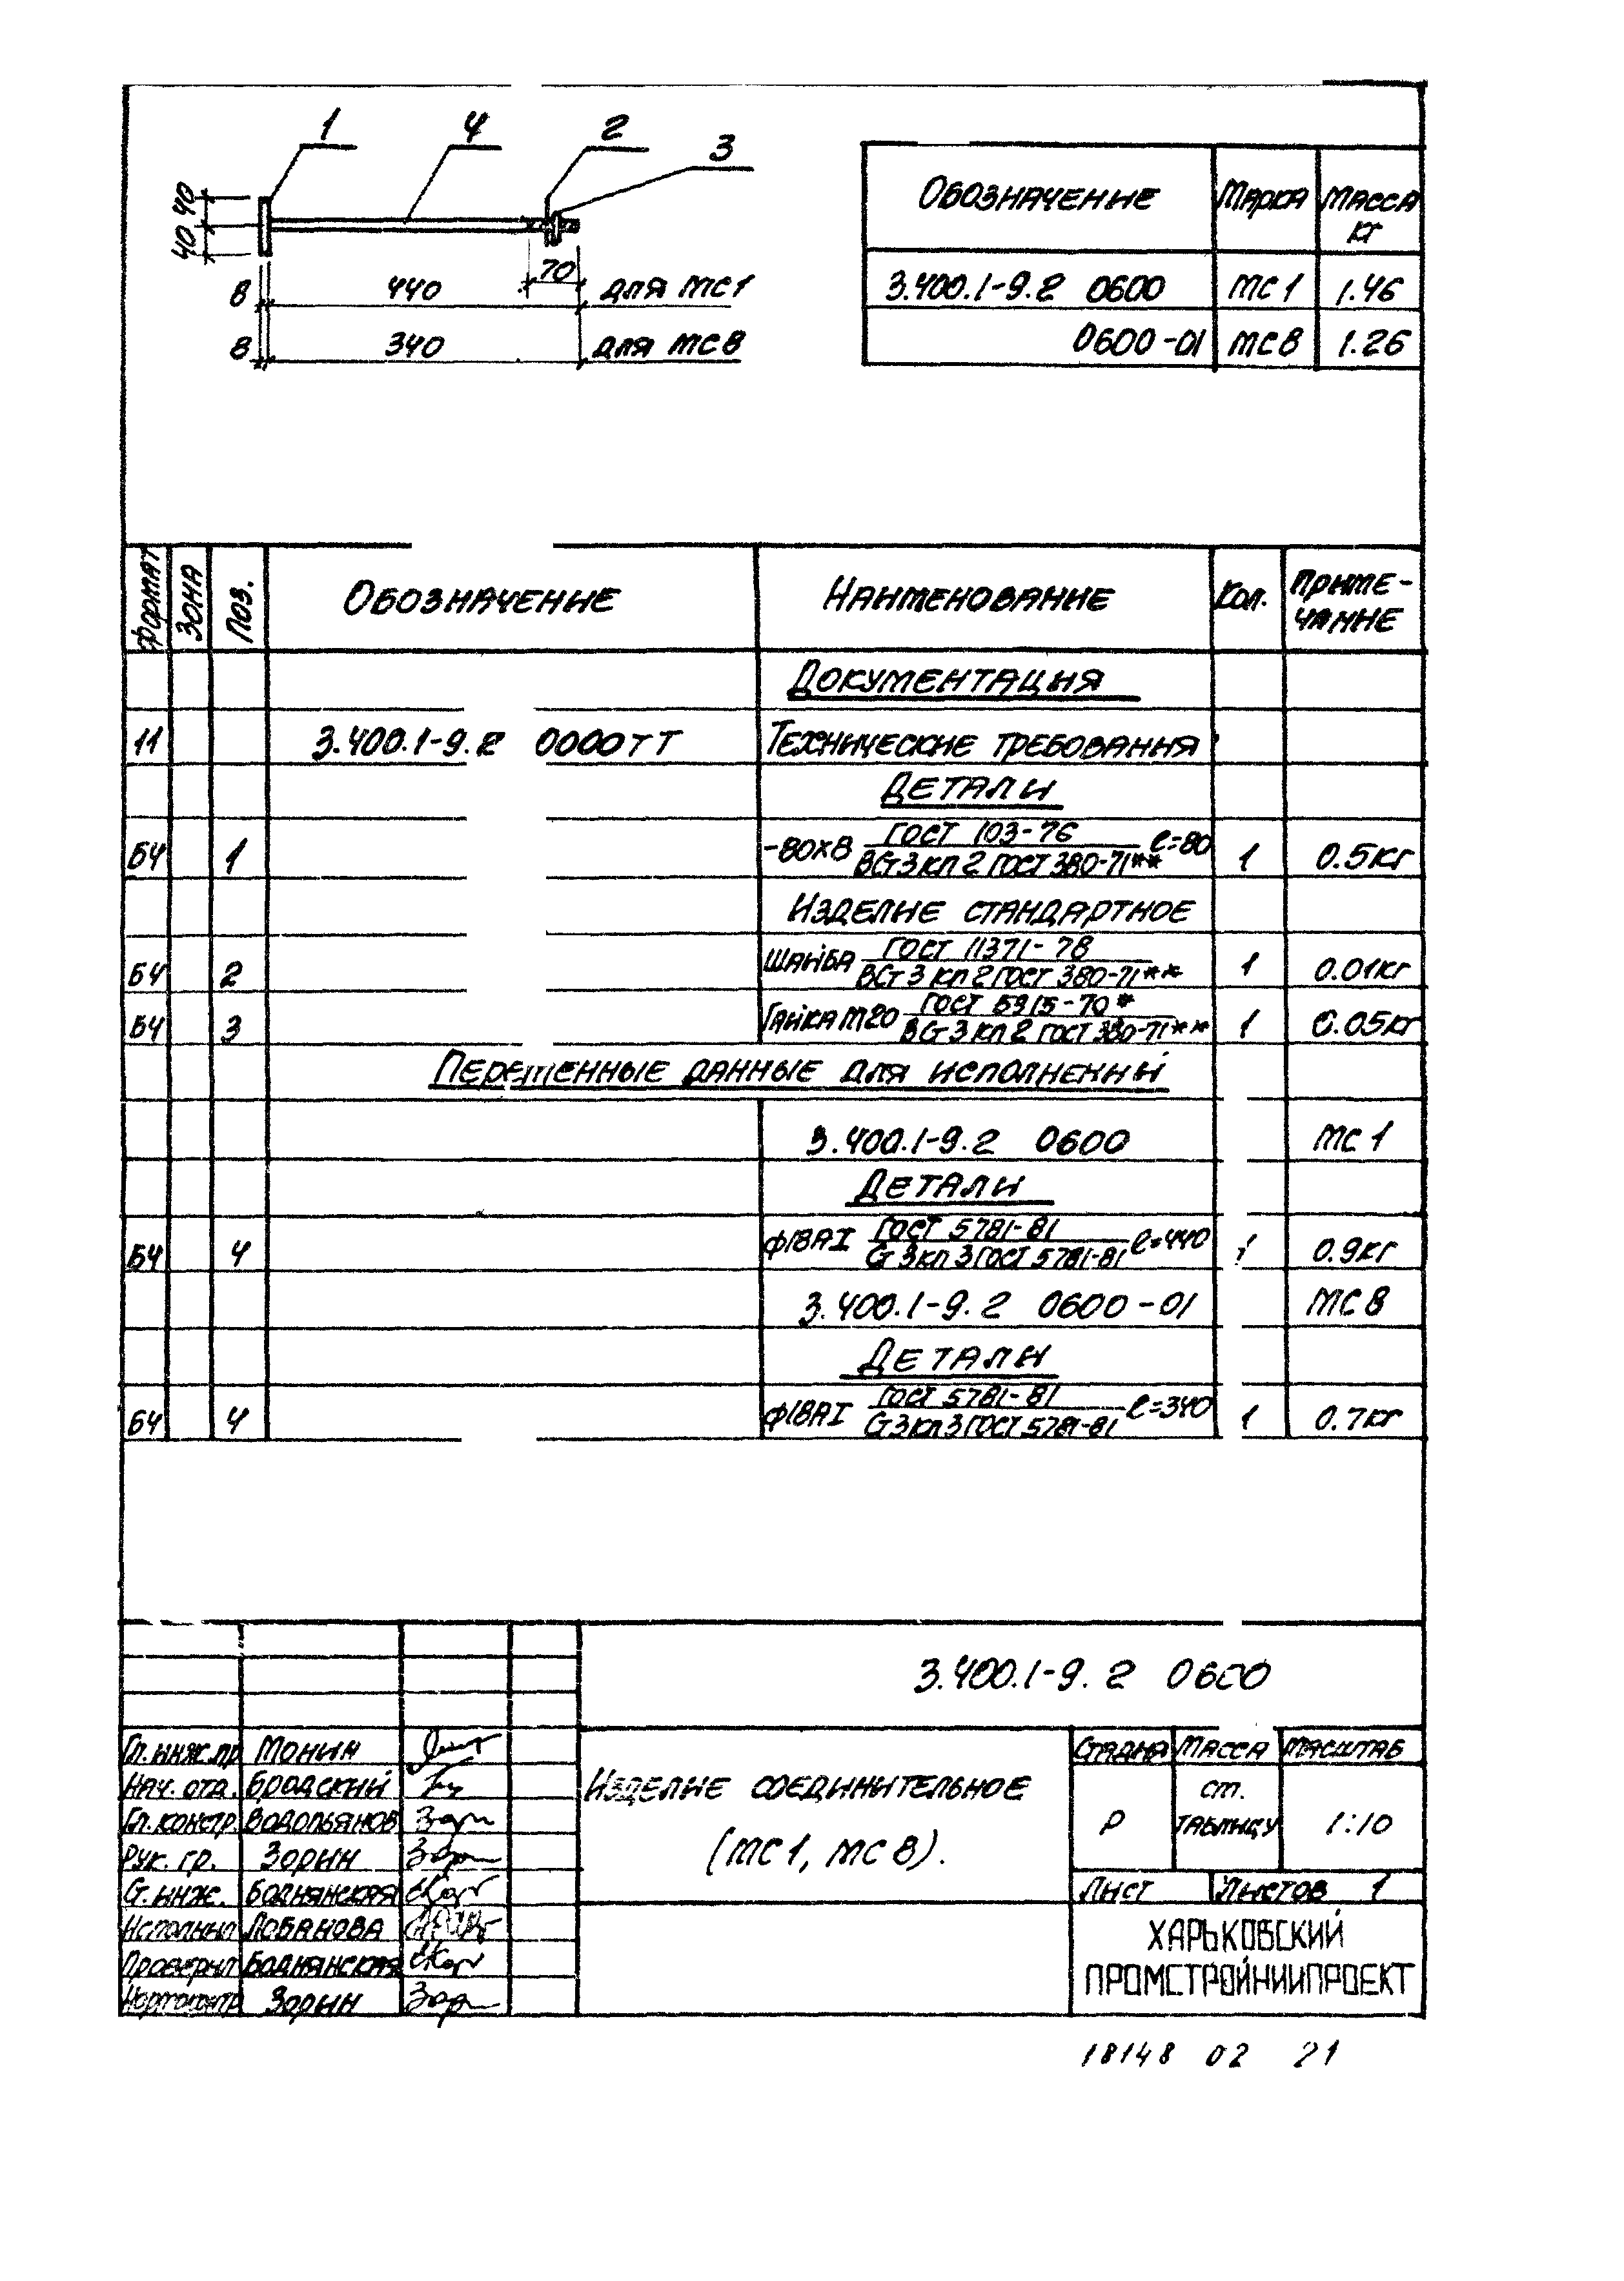 1 4 2 3
40 40
8 440 70 для МС1
8 340 для МС8
Обозначение Марка Масса кг
3.400.1-9.2 0600 МС1 1.46
0600-01 МС8 1.26
Формат Зона Поз. Обозначение Наименование Кол. Примечание
Документация
11 3.400.1-9.2 0000ТТ Технические требования
Детали
БЧ 1 -80х8 ГОСТ 103-76 / ВСт3кп2 ГОСТ 380-71** ℓ=80 1 0.5кг
Изделие стандартное
БЧ 2 Шайба ГОСТ 11371-78 / ВСт3кп2 ГОСТ 380-71** 1 0.01кг
БЧ 3 Гайка М20 ГОСТ 5915-70* / ВСт3кп2 ГОСТ 380-71** 1 0.05кг
Переменные данные для исполнений
3.400.1-9.2 0600 МС1
Детали
БЧ 4 ф18АI ГОСТ 5781-81 / Ст3кп3 ГОСТ 5781-81 ℓ=440 1 0.9кг
3.400.1-9.2 0600-01 МС8
Детали
БЧ 4 ф18АI ГОСТ 5781-81 / Ст3кп3 ГОСТ 5781-81 ℓ=340 1 0.7кг
3.400.1-9.2 0600
Гл.инж.пр Монин
Нач. отд. Бродский
Гл.констр. Водопьянов
Рук. гр. Зорин
Ст. инж. Боднянская
Исполнил Лобанова
Проверил Боднянская
Нормоконтр Зорин
Изделие соединительное
(МС1, МС8).
Стадия Масса Масштаб
Р ст. таблицу 1:10
Лист Листов 1
ХАРЬКОВСКИЙ
ПРОМСТРОЙНИИПРОЕКТ
18148 02 21